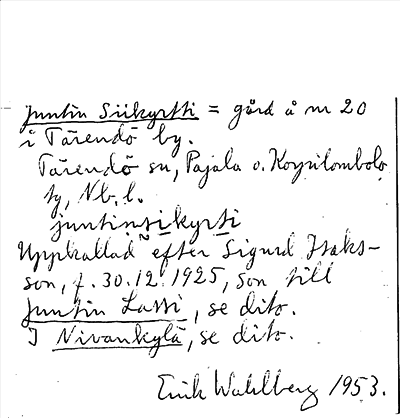 Juntin Siikyrtti = gård å nr 20
i Tärendö by.
Tärendö sn, Pajala o. Korpilombolo
tg, Nb. l.
juntinsikyrti
Uppkallad efter Sigurd Isaks-
son, f. 30.12.1925, son till
Juntin Lassi, se dito.
I Nivankylä, se dito.
Erik Wahlberg 1953.